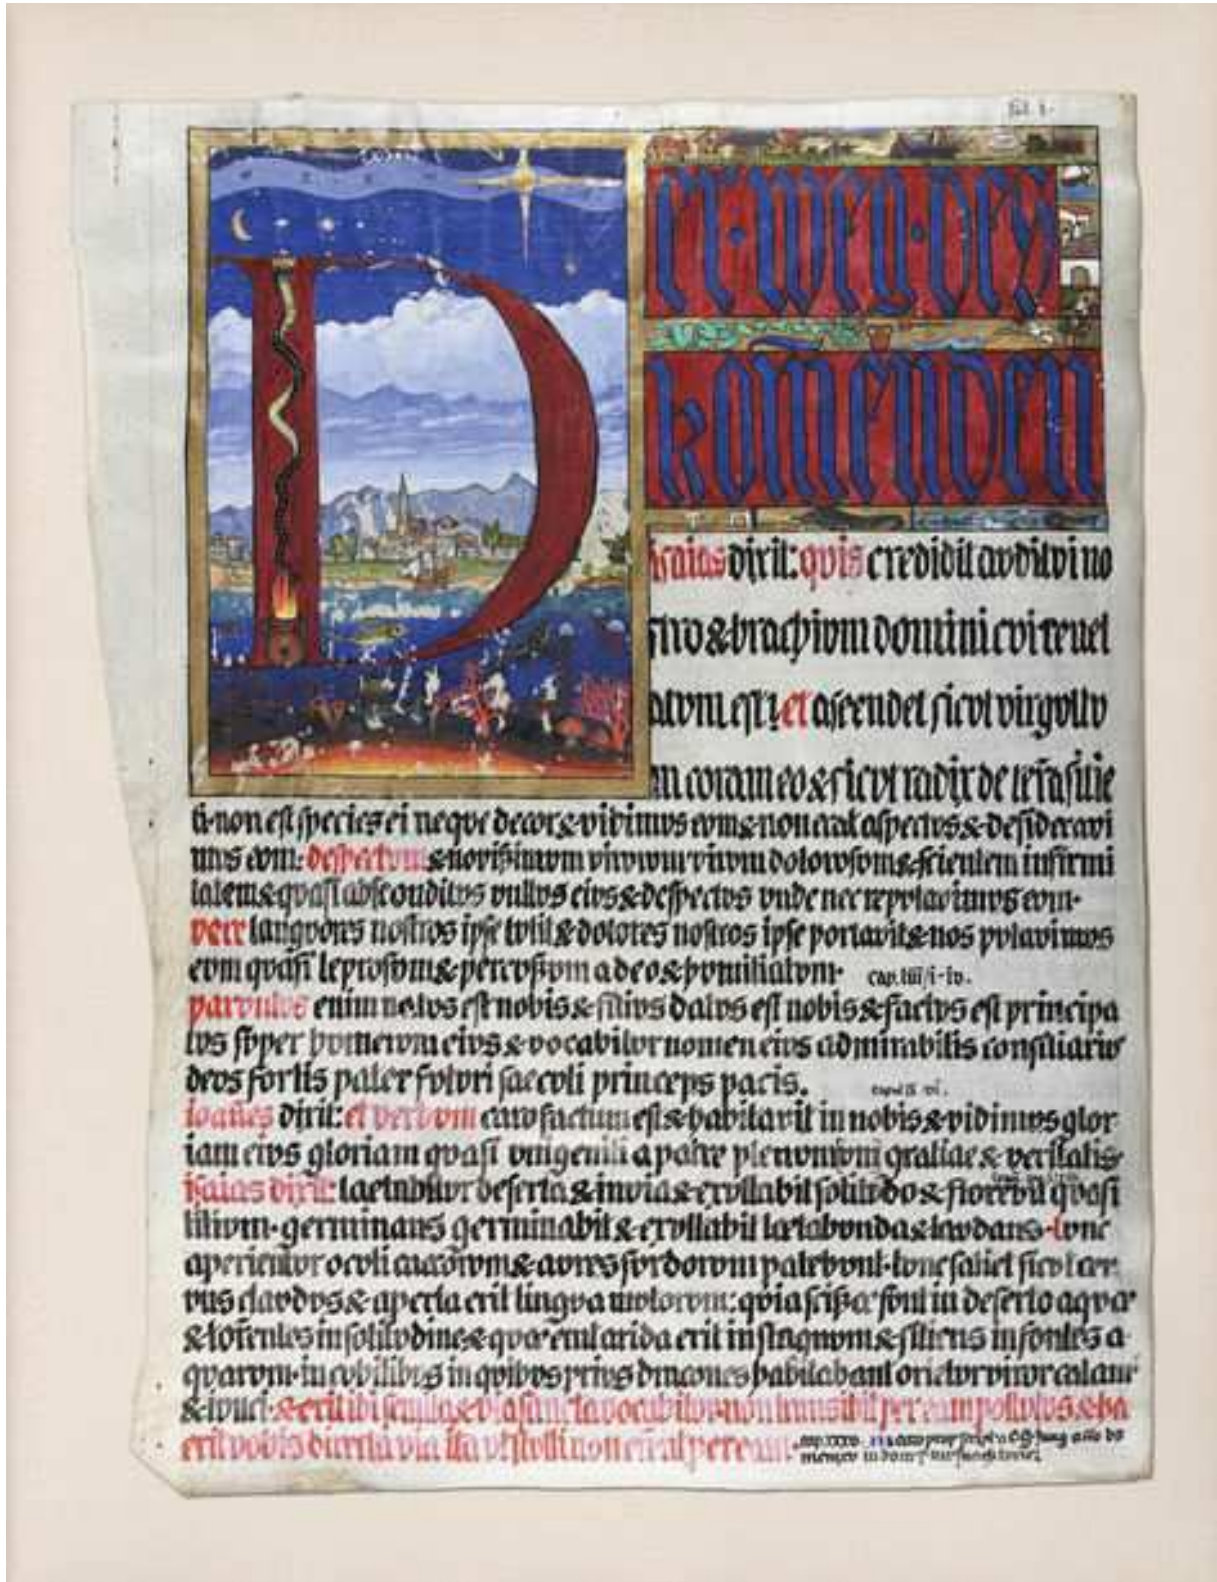 fol. i.
Der · weg · des
komenden
isaias dixit: qvis credidit avditvi no
stro & brachivm domini cvi revel
atvm est? et ascendet sicvt virgvltv
m coram eo & sicvt radix de terra sitie
ti · non est species ei neqve decor & vidimvs evm & non erat aspectvs & desideravi
mvs evm: despectvm & novissimvm virorvm virvm dolorosvm & scientem infirmi
tatem & qvasi absconditvs vvltvs eivs & despectvs vnde nec repvtavimvs evm ·
vere langvores nostros ipse tvlit & dolores nostros ipse portavit & nos pvtavimvs
evm qvasi leprosvm & percvssvm a deo & hvmiliatvm · cap. liii/i-iv.
parvvlvs enim natvs est nobis & filivs datvs est nobis & factvs est principa
tvs svper hvmervm eivs & vocabitvr nomen eivs admirabilis consiliarivs
devs fortis pater fvtvri saecvli princeps pacis. vi.
ioañes dixit: et verbvm caro factum est & habitavit in nobis & vidimvs glor
iam eivs gloriam qvasi vnigeniti a patre plenvm gratiae & veritatis
isaias dixit: laetabitvr deserta & invia & exvltabit solitvdo & florebit qvasi
lilivm · germinans germinabit & exvltabit lætabvnda & lavdans · tvnc
aperientvr ocvli cæcorvm & avres svrdorvm patebvnt · tvnc saliet sicvt cer
vvs clavdvs & aperta erit lingva mvtorvm: qvia scissæ svnt in deserto aqvæ
& torentes in solitvdine & qvæ erat arida erit in stagnvm & sitiens in fontes a
qvarvm · in cvbilibvs in qvibvs privs dracones habitabant orietvr viror calami
& ivnci · & erit ibi semita & via sancta vocabitvr · non transibit per eam pollvtvs & hæ
erit vobis directa via ita vt stvlti non erent per eam · cap. xxxv